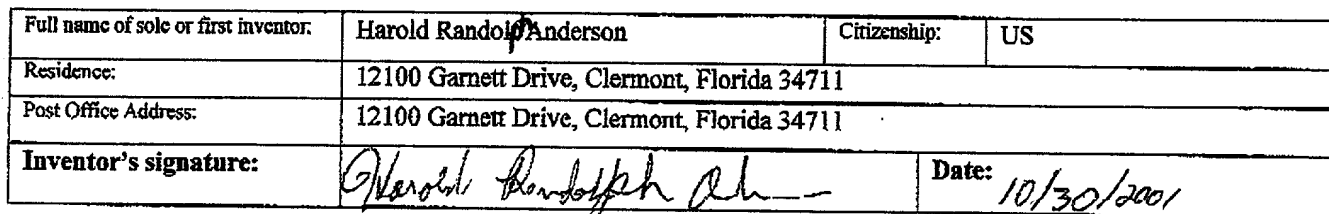 Full name of sole or first inventor: Harold Randolph Anderson Citizenship: US
Residence: 12100 Garnett Drive, Clermont, Florida 34711
Post Office Address: 12100 Garnett Drive, Clermont, Florida 34711
Inventor's signature: Harold Randolph Date: 10/30/2001